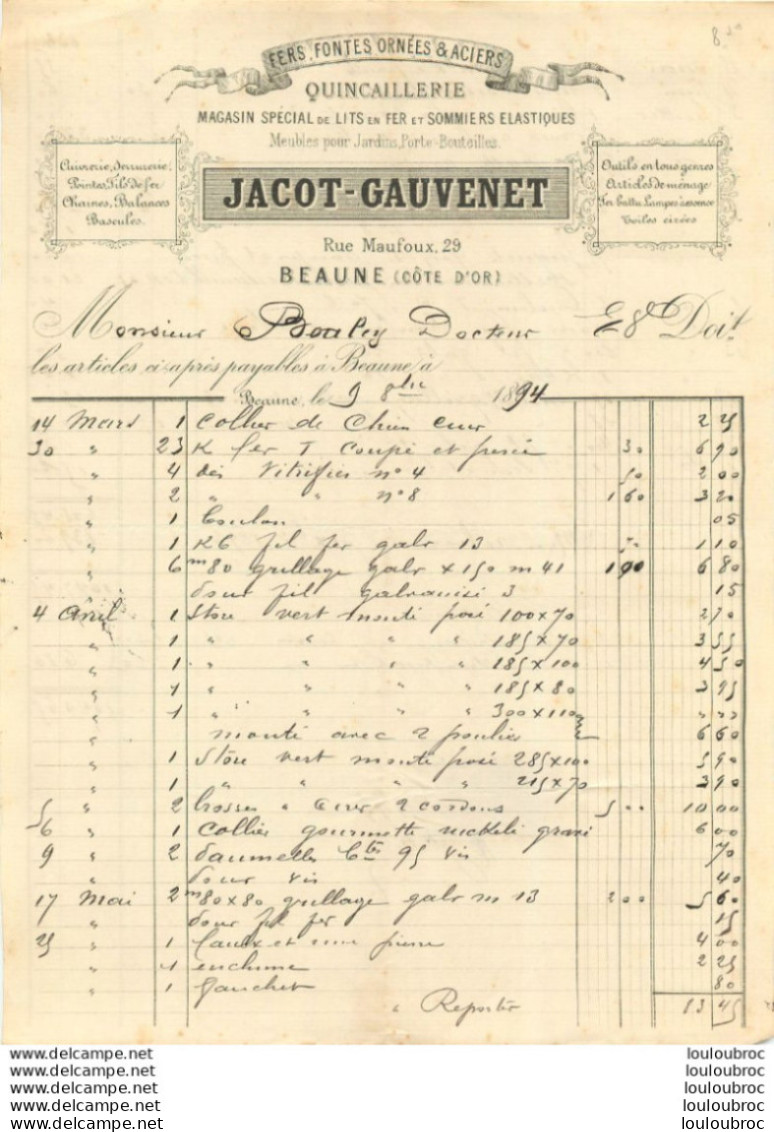 8
FERS, FONTES ORNÉES & ACIERS
QUINCAILLERIE
MAGASIN SPÉCIAL DE LITS EN FER ET SOMMIERS ELASTIQUES
Meubles pour Jardins, Porte-Bouteilles.
Cuivrerie, Serrurerie,
Pointes, Fils de fer
Chaines, Balances
Bascules.
JACOT-GAUVENET
Outils en tous genres
Articles de ménage
Fer battu Lampes à essence
Toiles cirées
Rue Maufoux, 29
BEAUNE (CÔTE D'OR)
Monsieur Docteur Doit
les articles ci-après payables à Beaune à
Beaune, le 9 8bre 1894
14 Mars 1 Collier de Chien cuir 2 25
30 " 23 K fer T coupé et percé 30 6 90
" 4 dés Vitrifiés n° 4 50 2 00
" 2 " " n° 8 160 3 20
" 1 Boulon 05
" 1 K6 fil fer galv 13 1 10
" 6 m 80 grillage galv x 150 m 41 100 6 80
" dour fil galvanisé 3 15
4 Avril 1 Store vert monté posé 100 x 70 2 70
" 1 " " " " 185 x 70 3 55
" 1 " " " " 185 x 100 4 50
" 1 " " " " 185 x 80 3 95
" 1 " " " " 300 x 110 " "
" monté avec 2 poulies 6 60
" 1 Store vert monté posé 285 x 100 5 90
" 1 " " " " 215 x 70 3 90
5 " 2 brosses à cirer 2 cordons 5 00 10 00
6 " 1 Collier gourmette nickelé gravé 6 00
9 " 2 paumelles 95 vis 70
" pour vis 40
17 Mai 2 m 80 x 80 grillage galv m 13 200 5 60
" pour fil fer 15
25 " 1 faulx et une pierre 4 00
" 1 enclume 2 25
" 1 80
à Reporter 83 45
www.delcampe.net
www.delcampe.net
www.delcampe.net
www.delcampe.net
www.delcampe.net
louloubroc
louloubroc
louloubroc
louloubroc
louloubroc